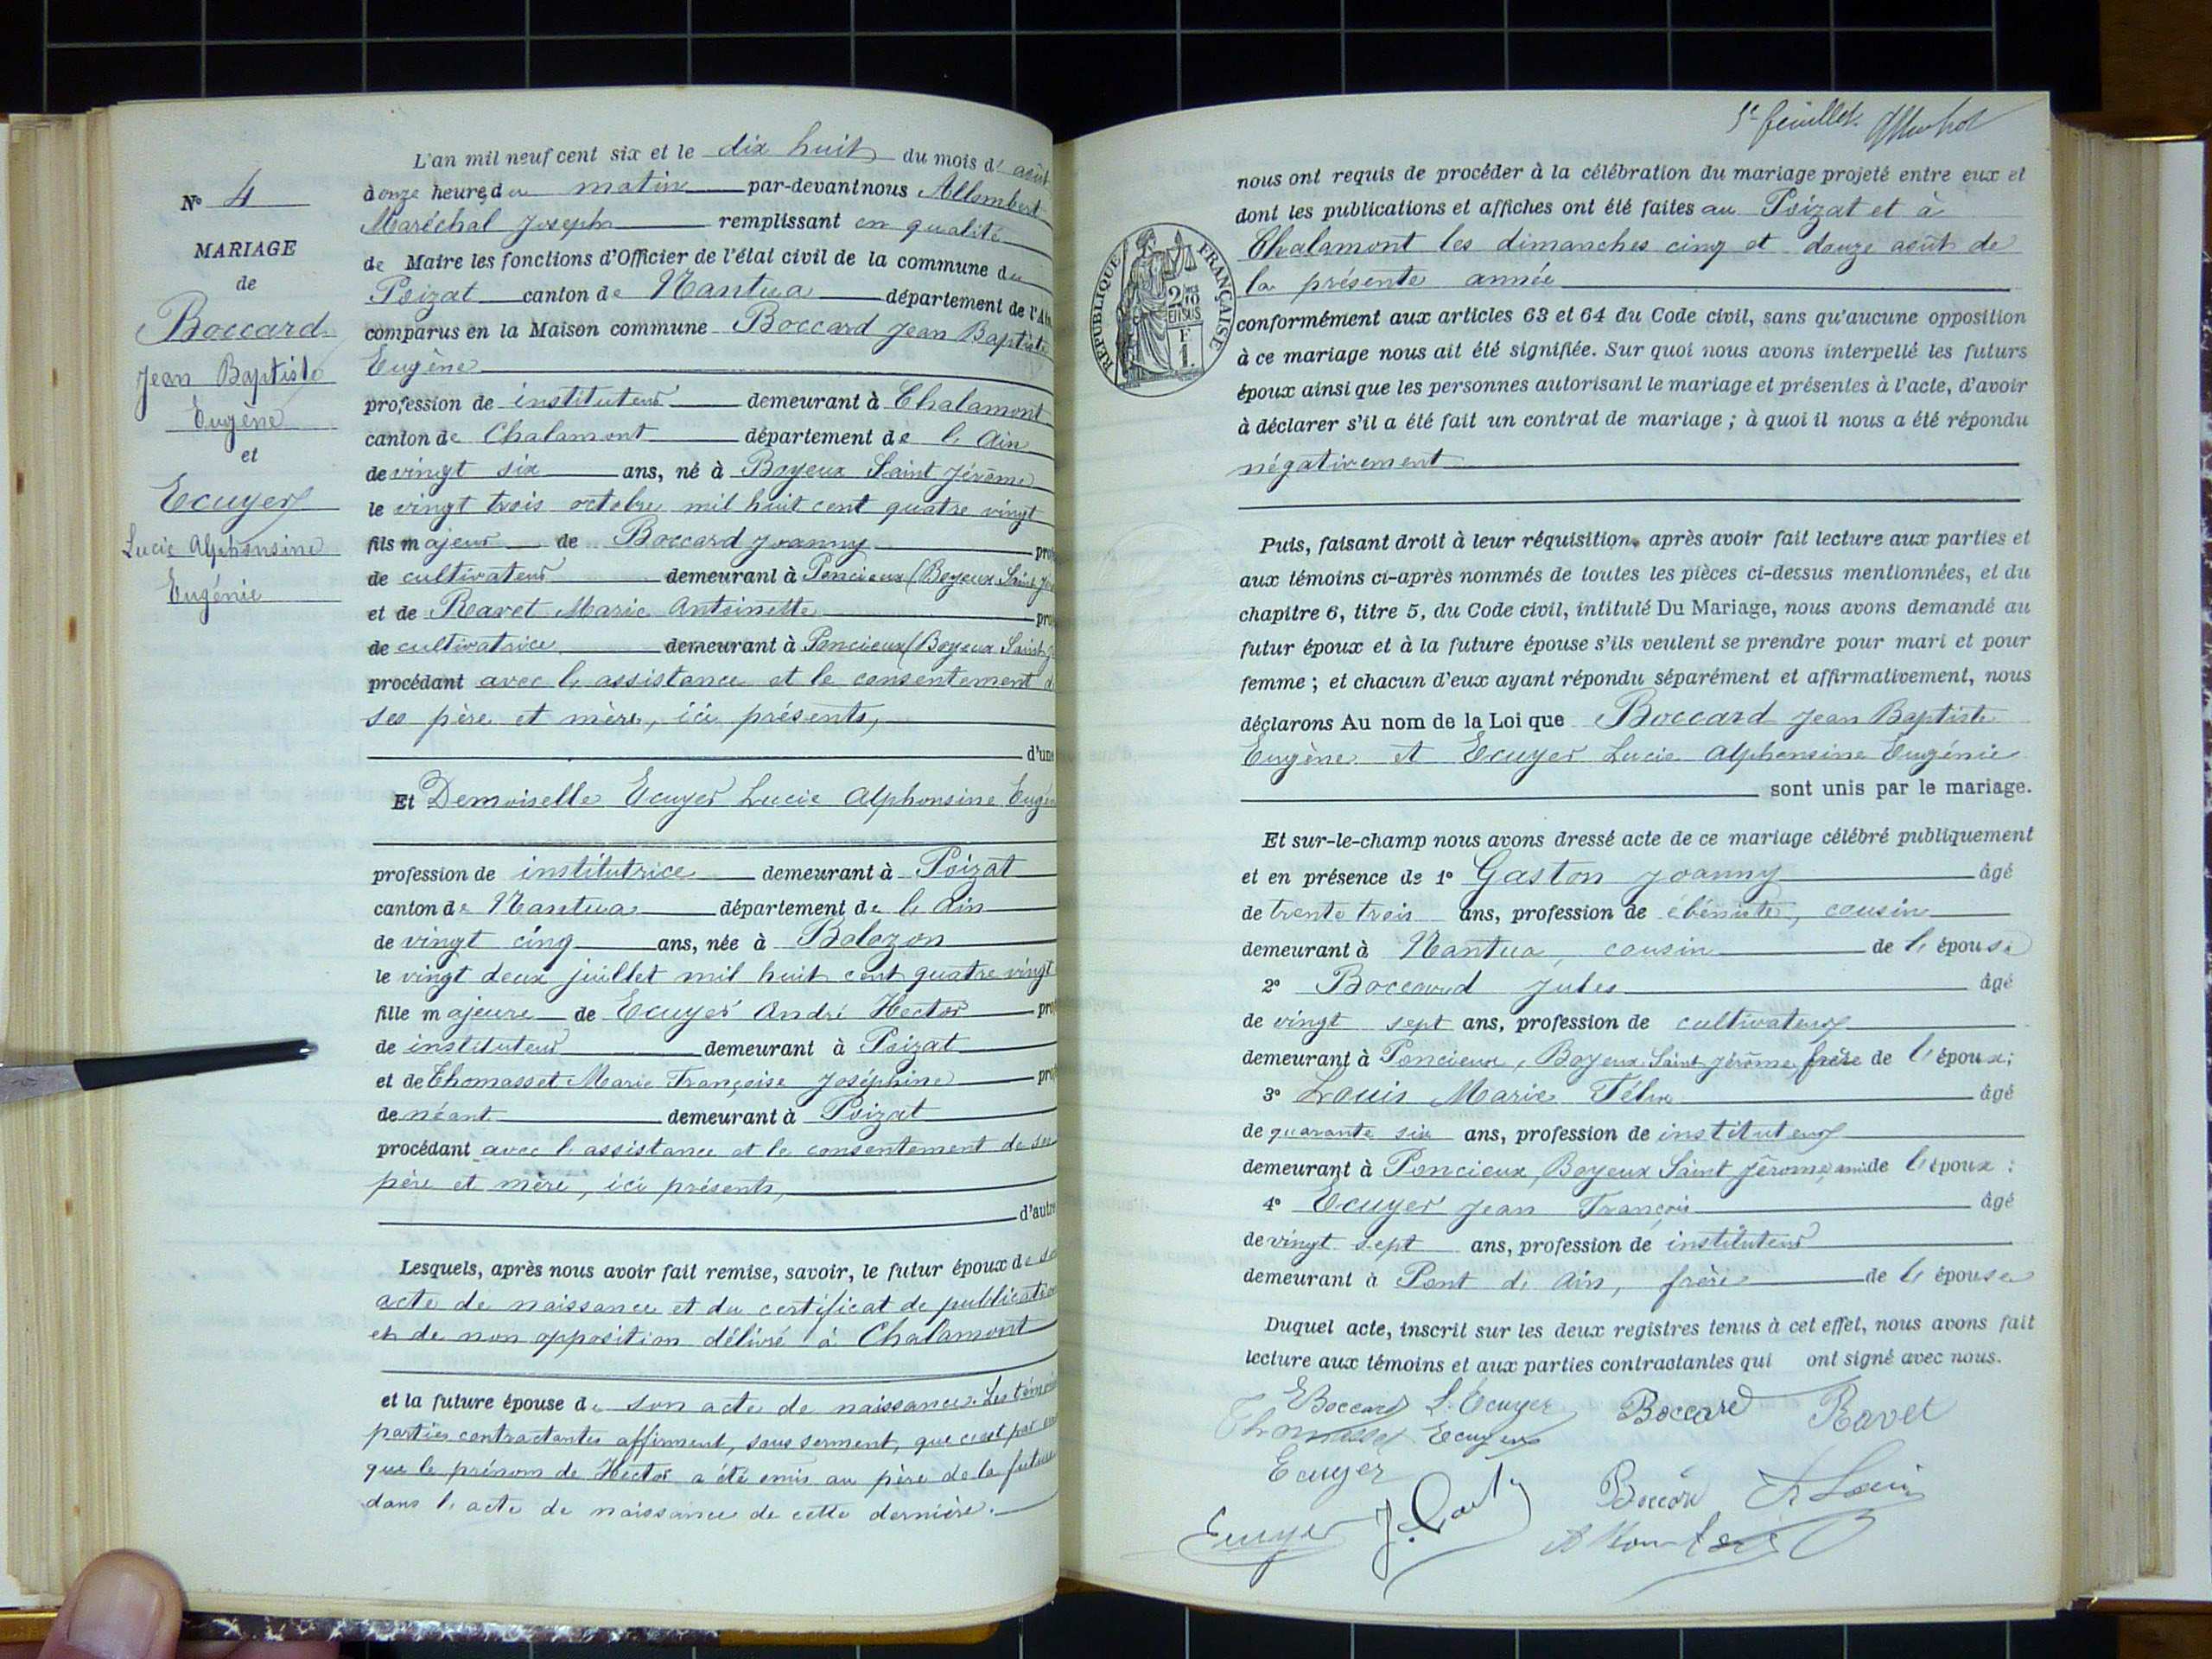 N° 4
MARIAGE
de
Boccard
Jean Baptiste
Eugène
et
Ecuyer
Lucie Alphonsine
Eugénie
L'an mil neuf cent six et le dix huit du mois d' août
à onze heures du matin par-devant nous Allombert
Maréchal Joseph remplissant en qualité
de Maire les fonctions d'Officier de l'état civil de la commune du
Poizat canton de Nantua département de l'Ain
comparus en la Maison commune Boccard Jean Baptiste
Eugène
profession de instituteur demeurant à Chalamont
canton de Chalamont département de l'Ain
de vingt six ans, né à Boyeux Saint Jérôme
le vingt trois octobre mil huit cent quatre vingt
fils majeur de Boccard Joanny pro
de cultivateur demeurant à Poncieux (Boyeux Saint Jér
et de Ravet Marie Antoinette pro
de cultivatrice demeurant à Poncieux (Boyeux Saint J
procédant avec l'assistance et le consentement d
ses père et mère, ici présents,
d'une
Et Demoiselle Ecuyer Lucie Alphonsine Eugén
profession de institutrice demeurant à Poizat
canton de Nantua département de l'Ain
de vingt cinq ans, née à Bolozon
le vingt deux juillet mil huit cent quatre vingt
fille majeure de Ecuyer André Hector pro
de instituteur demeurant à Poizat
et de Thomasset Marie Françoise Joséphine pro
de néant demeurant à Poizat
procédant avec l'assistance et le consentement de ses
père et mère, ici présents,
d'autre
Lesquels, après nous avoir fait remise, savoir, le futur époux de so
acte de naissance et du certificat de publication
et de non opposition délivré à Chalamont
et la future épouse de son acte de naissance. Les témoi
parties contractantes affirment, sous serment, que c'est par
que le prénom de Hector a été omis au père de la future
dans l'acte de naissance de cette dernière.
5e feuillet.
nous ont requis de procéder à la célébration du mariage projeté entre eux et
dont les publications et affiches ont été faites au Poizat et à
Chalamont les dimanches cinq et douze août de
la présente année
RÉPUBLIQUE FRANÇAISE
2/10 EN SUS
F
1.
conformément aux articles 63 et 64 du Code civil, sans qu'aucune opposition
à ce mariage nous ait été signifiée. Sur quoi nous avons interpellé les futurs
époux ainsi que les personnes autorisant le mariage et présentes à l'acte, d'avoir
à déclarer s'il a été fait un contrat de mariage ; à quoi il nous a été répondu
négativement
Puis, faisant droit à leur réquisition, après avoir fait lecture aux parties et
aux témoins ci-après nommés de toutes les pièces ci-dessus mentionnées, et du
chapitre 6, titre 5, du Code civil, intitulé Du Mariage, nous avons demandé au
futur époux et à la future épouse s'ils veulent se prendre pour mari et pour
femme ; et chacun d'eux ayant répondu séparément et affirmativement, nous
déclarons Au nom de la Loi que Boccard Jean Baptiste
Eugène et Ecuyer Lucie Alphonsine Eugénie
sont unis par le mariage.
Et sur-le-champ nous avons dressé acte de ce mariage célébré publiquement
et en présence de 1° Gaston Joanny âgé
de trente trois ans, profession de ébéniste, cousin
demeurant à Nantua, cousin de l'épouse
2° Boccard Jules âgé
de vingt sept ans, profession de cultivateur
demeurant à Poncieux, Boyeux Saint Jérôme frère de l'époux ;
3° Louis Marie Félix âgé
de quarante six ans, profession de instituteur
demeurant à Poncieux, Boyeux Saint Jérome, ami de l'époux ;
4° Ecuyer Jean François âgé
de vingt sept ans, profession de instituteur
demeurant à Pont d'Ain, frère de l'épouse
Duquel acte, inscrit sur les deux registres tenus à cet effet, nous avons fait
lecture aux témoins et aux parties contractantes qui ont signé avec nous.
EBoccard L. Ecuyer Boccard Ravet
Thomasset Ecuyer
Ecuyer
Boccard
Ecuyer